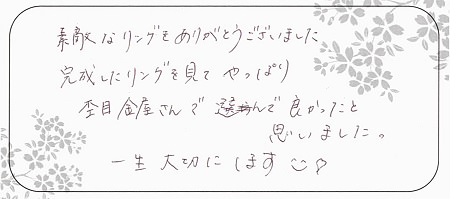 素敵なリングをありがとうございました
完成したリングを見て やっぱり
杢目金屋さんで 選んで 良かったと
思いました。
一生 大切にします